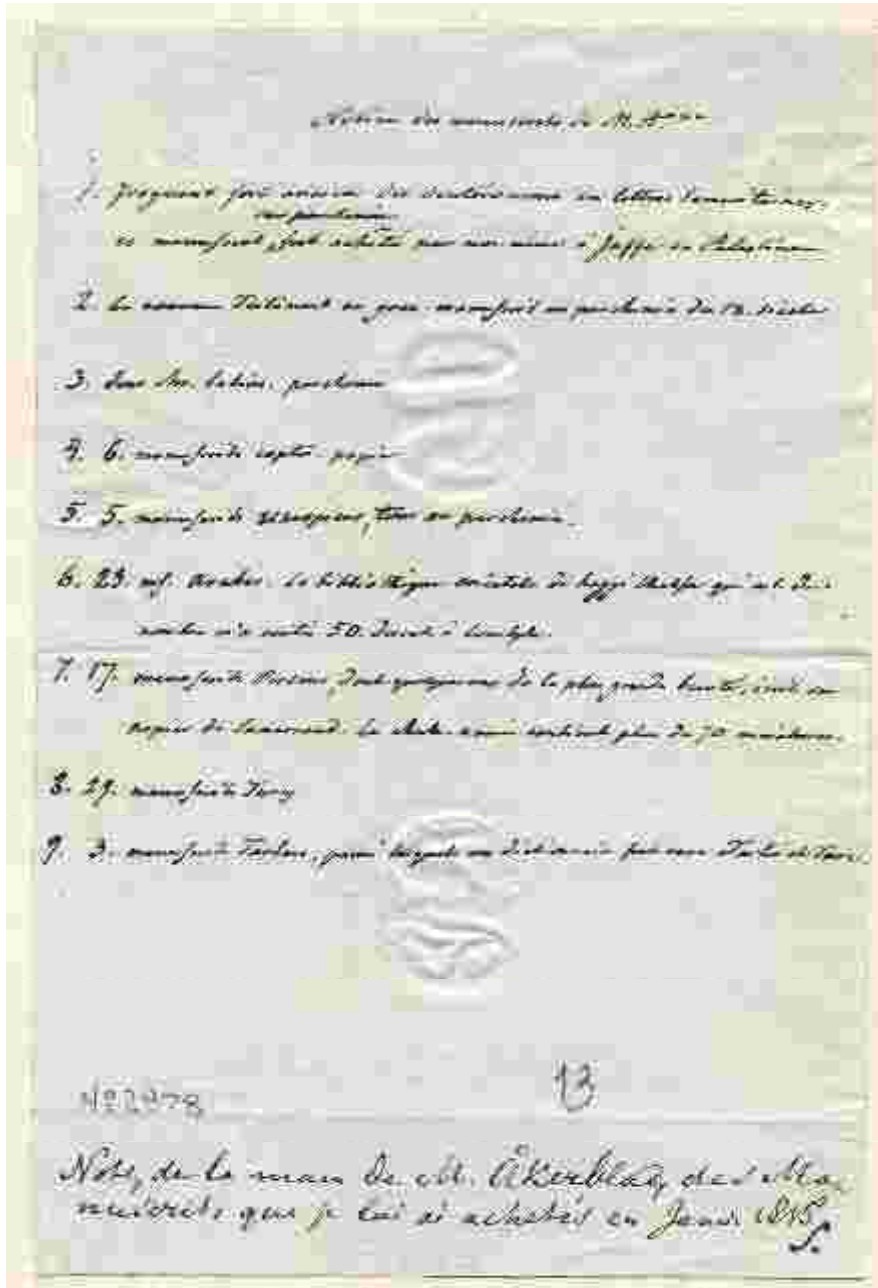 Notice des manuscrits de M. A
1. fragment fort ancien du Deutéronome en lettres Samaritaines
sur parchemin
ce manuscrit, fut acheté par moi même à Jaffa en Palestine
2. Le nouveau Testament en grec manuscrit en parchemin du 12. siècle
3. Latins. parchemin
4. 6. manuscrits coptes papier
5. 5. manuscrits, tous en parchemin.
6. 23. mf. Arabes. La bibliothèque orientale de haggi Khalfa qui est du
nombre m'a coûté 50. Ducats à
7. 17. manuscrits Persans, dont quelques uns de la plus grande beauté, écrits en
papier de La contient plus de 70 miniatures.
8. 29. manuscrits Turcs
9. 3. manuscrits Tartares, parmi lesquels un
Nº 2978
13
Note, de la main de M. Åkerblad, des Ma
nuscrits que je lui ai achetés en Janvr 1815
S.